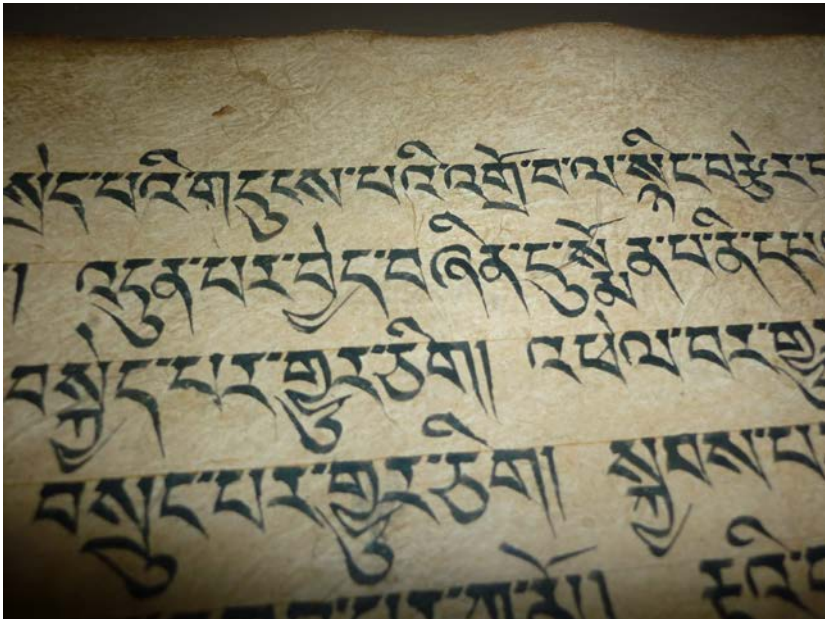 སྲེད་པའི་གདུངས་པའི་འགྲོ་བ་ལ་སྙིང་བརྩེར་
། འདུན་པར་བྱེད་བཞིན་དུ་སྨོན་པ་ནི་
བསྐྱེད་པར་གྱུར་ཅིག། འཕེལ་བར་
བསྲུང་པར་གྱུར་ཅིག། སྐྱབས་པ་